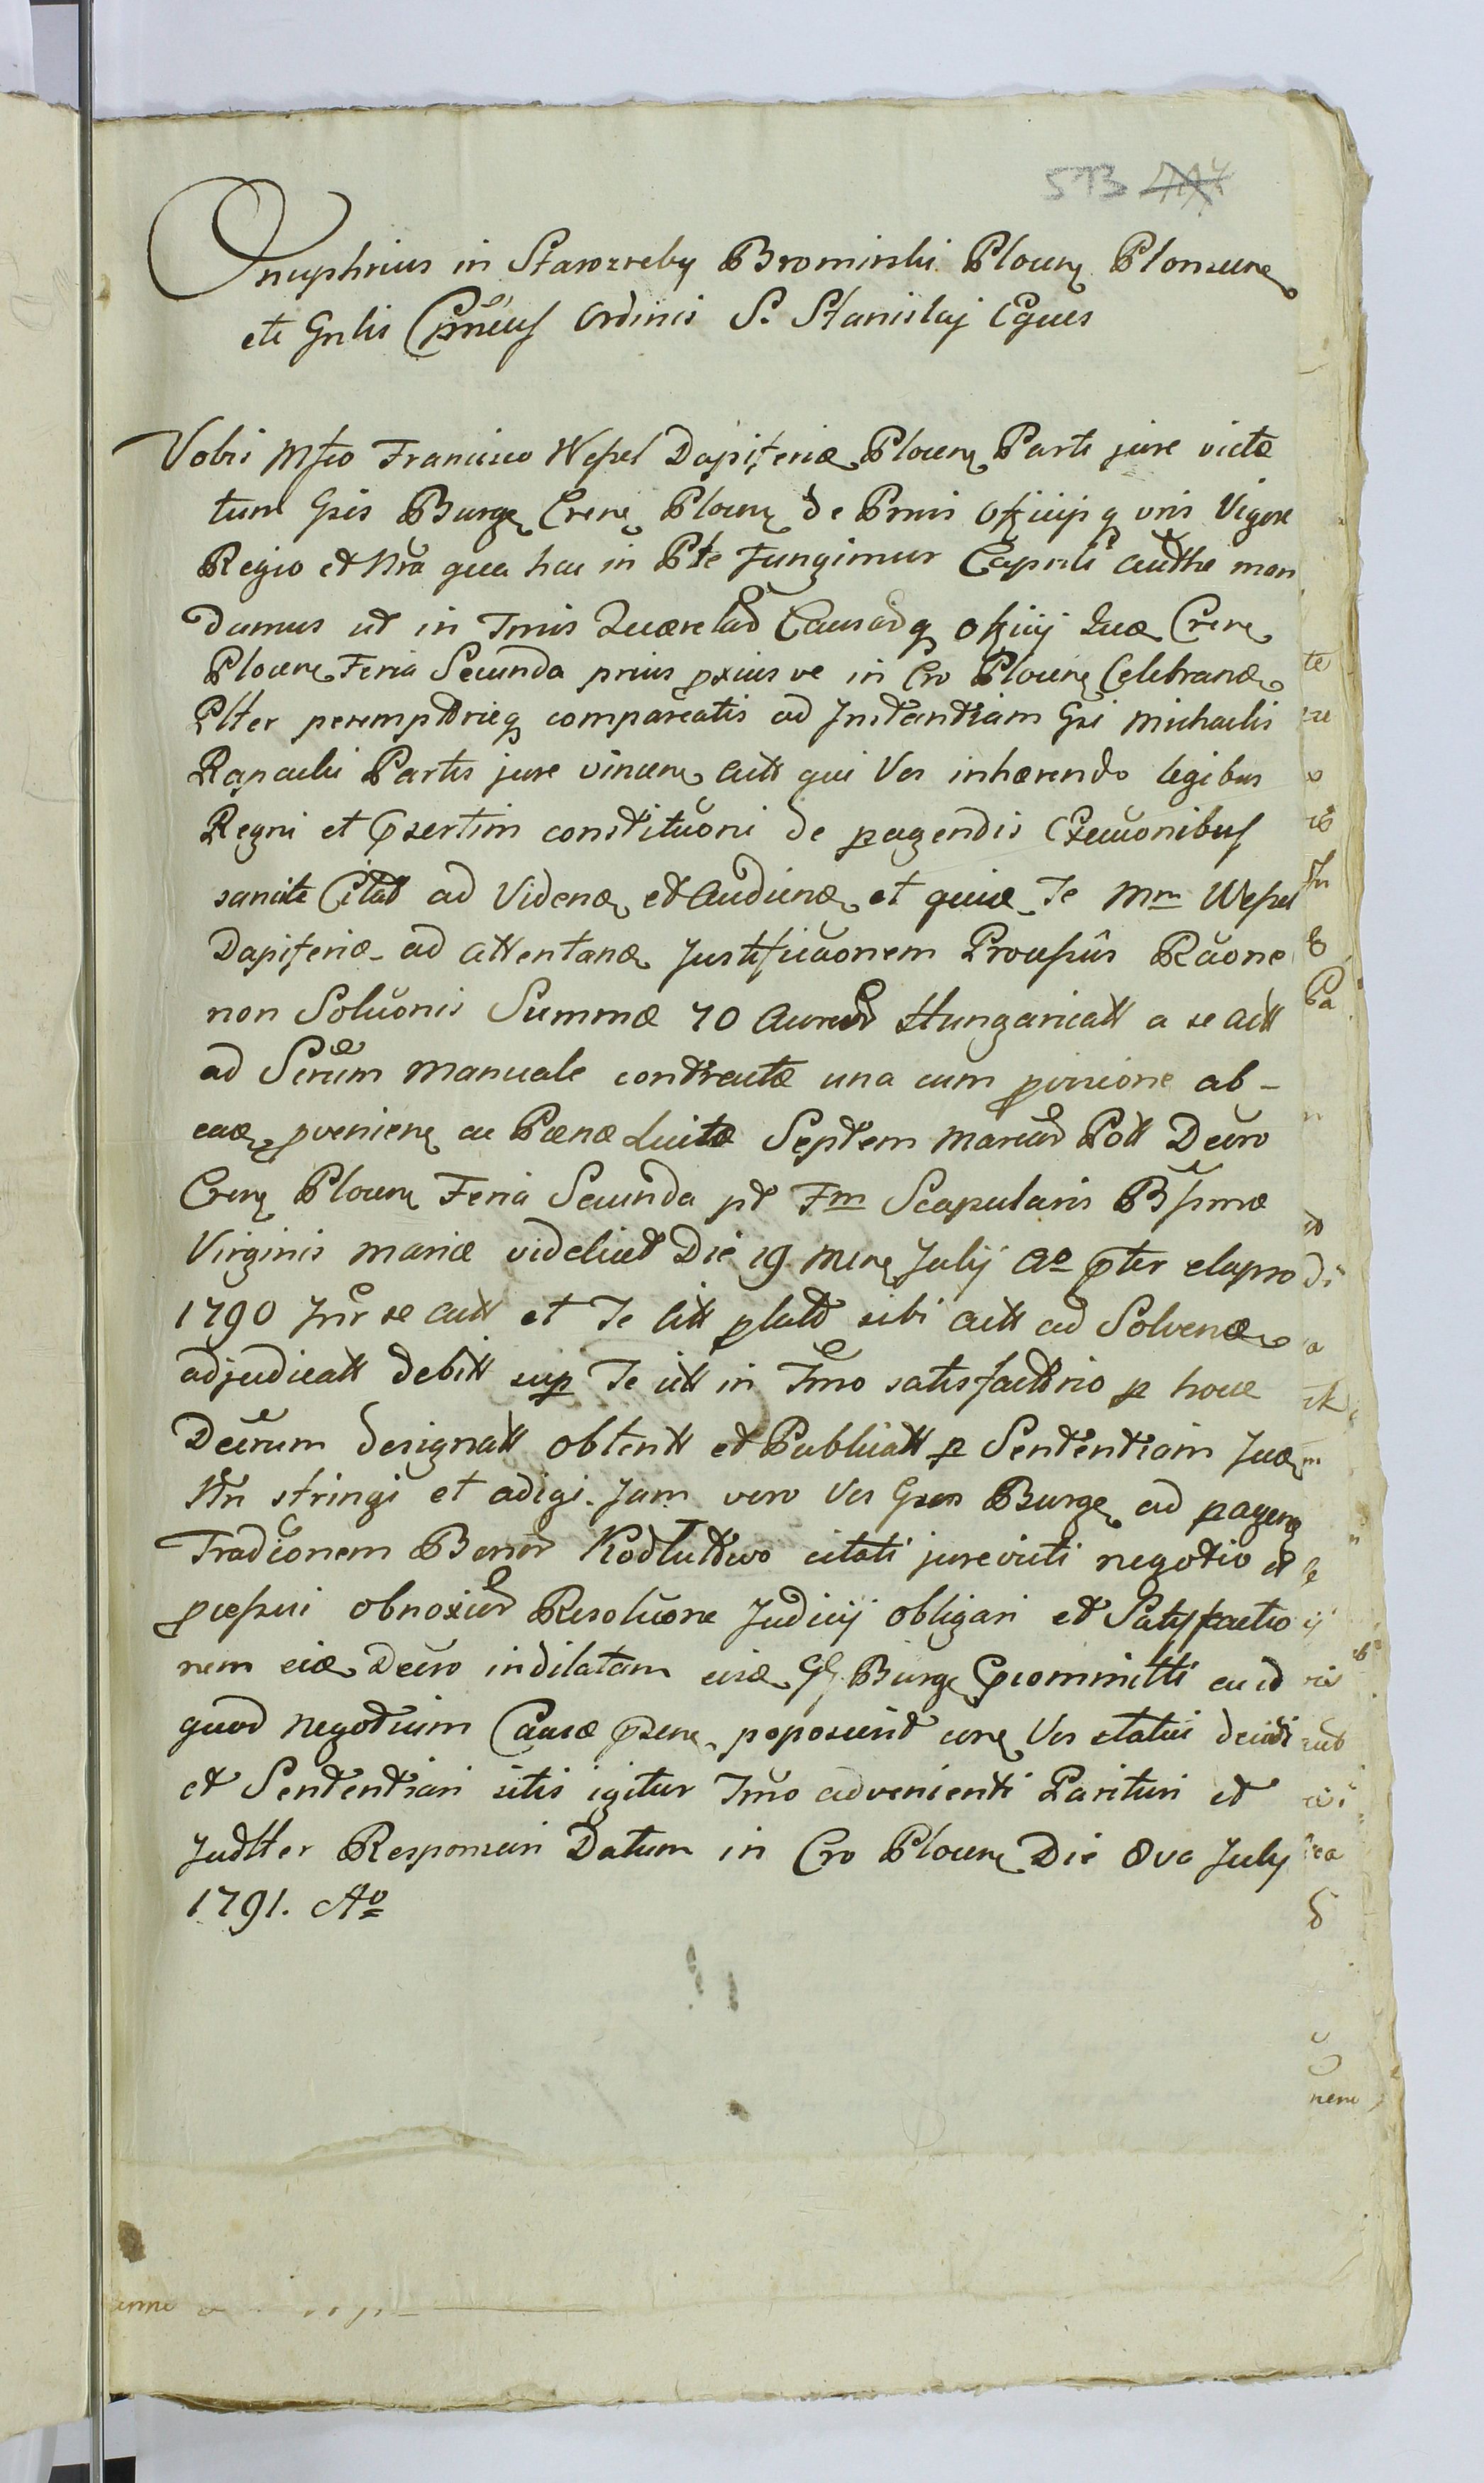 513
Onuphrius in Starozreby Brominski Plocen Plonscen
etc Gnlis Ordinis S. Stanislaj Eques
Vobis Mfco Francisco Wessel Dapiferiæ Plocen Parti jure victæ
tum Gsis Burg Cren Plocen de Prmis Officijsq vris Vigore
Regio et Nra qua hac in Pte Fungimur Capnli autthe man
damus ut in Tmis Quærelar Causarq Officij Cren
Plocen Feria Secunda prius pxius ve in Cro Plocen Celebran
Plter peremptrieq compareatis ad Instantiam Gsi Michaelis
Rapacki Partis jure vincen Actt qui Vos inhærendo legibus
Regni et Psertim constituoni de pagendis Execuonibus
sancitæ Citat ad Viden et Audien et quia Te Mm Wessel
Dapiferiæ ad attentan Justificaonem Processus Raone
non Soluonis Summæ 70 Aureor Hungaricatt a se Actt
ad Scrum Manuale contractæ una cum pvisione ab-
eâ pvenien ac Pænæ Luitæ Septem Marcar Pott Decro
Cren Plocen Feria Secunda pt Fm Scapularis Bssmæ
Virginis Mariæ videlicet Die 19 Mens Julij Ao Pter elapso
1790 Intr se Actt et Te Citt plato sibi Actt ad Solven
adjudicatt debitt sup Te citt in Tmo satisfactrio p hocce
Decrum designatt obtentt et Publicatt p Sententiam
Ittn stringi et adigi. Jam vero Vos Gsos Burg ad pagen
Tradionem Bonor Kodlutowo citati jurevicti negotio et
pcessui obnoxior Resoluone Judicij obligari et Satisfactio
nem Decro indilatam Burg committi cu id
quod negotium Causæ psen poposcerit Vos statui decidi
et Sententiari sitis igitur Tmo advenienti Parituri et
Judtter Responsuri Datum in Cro Plocen Die 8va July
1791. Ao